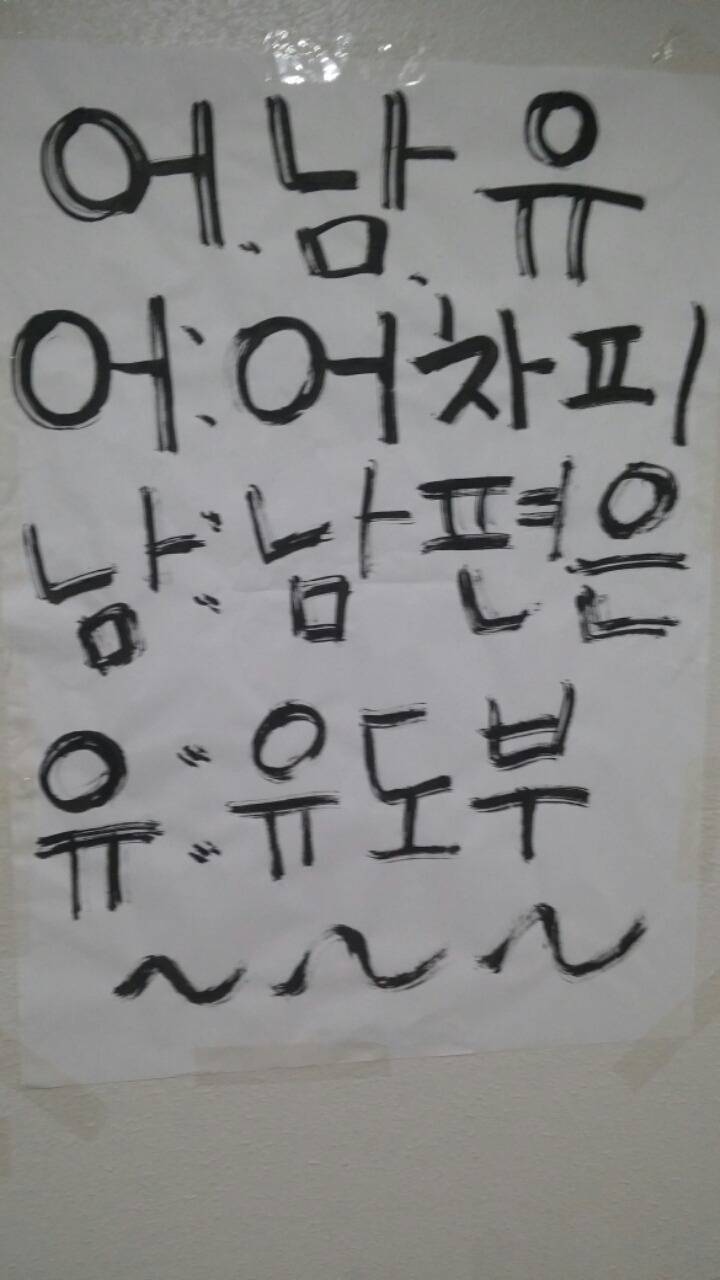 어.남.유
어: 어차피
남: 남편은
유: 유도부
~ ~ ~